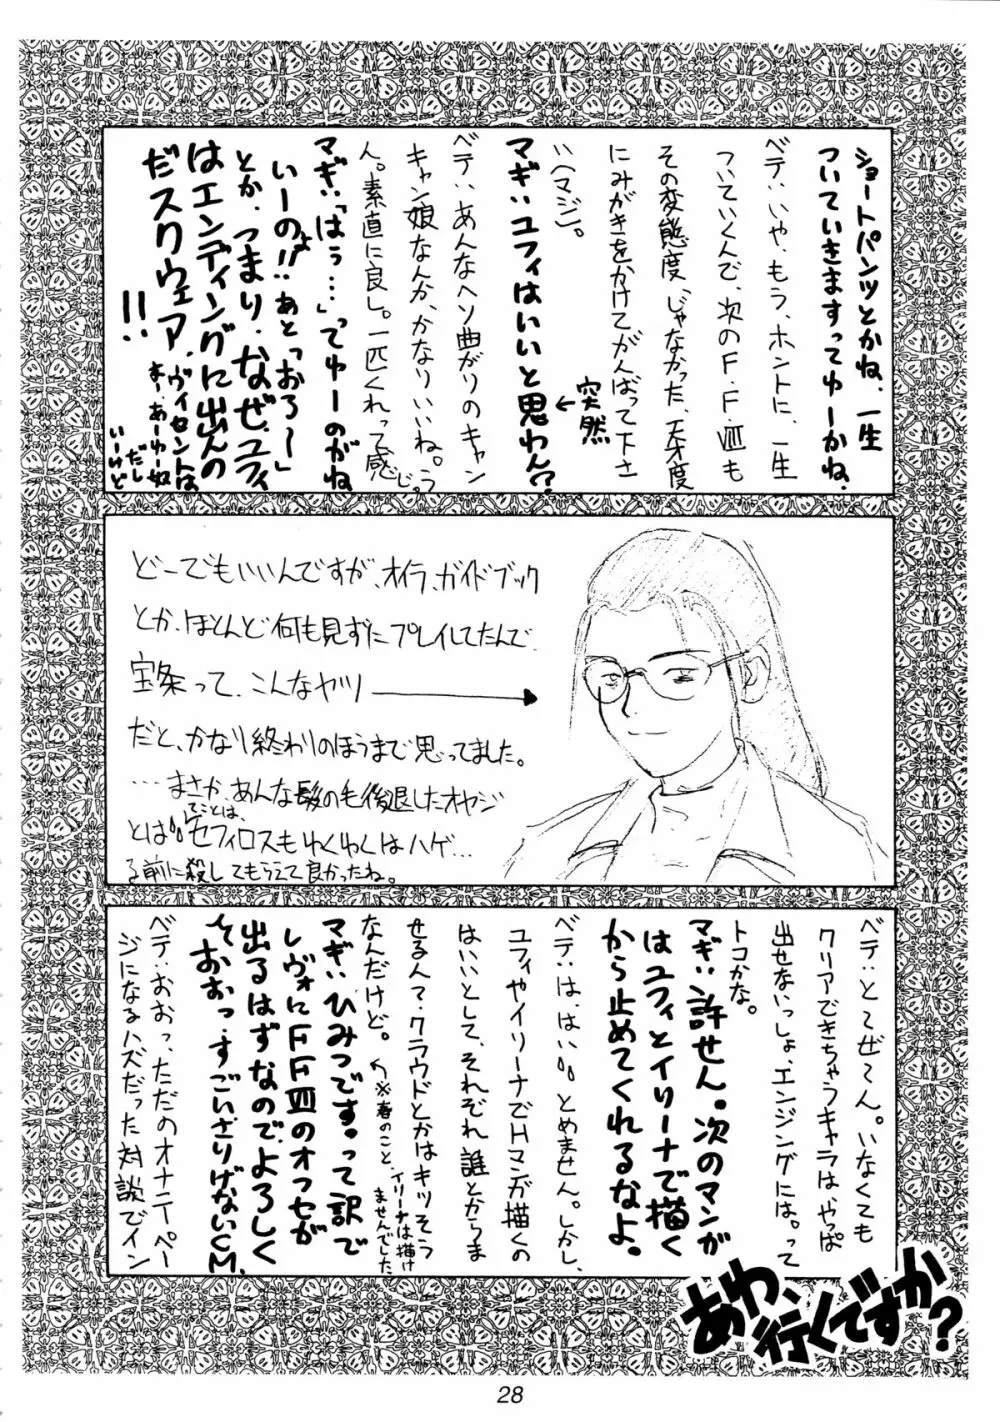 ショートパンツとかね、一生
ついていきますってゆーかね。
ベテ:いや、もう、ホントに、一生
ついていくんで、次のF.F.Ⅷも
その変態度、じゃなかった、天才度
にみがきをかけてがんばって下さ
い(マジ)。
マギ:ユフィはいいと思わん?
←突然
ベテ:あんなヘソ曲がりのキャン
キャン娘なんか、かなりいいね。う
ん。素直に良し。一匹くれって感じ。
マギ:「はうっ…」ってゆーのがね
いーのよ!!あと「おろ〜」
とか、つまり、なぜユフィ
はエンディングに出んの
だスクウェア!!
ヴィンセントは
まー、あーゆー奴
だし
いーけど
どーでもいいんですが、オイラ、ガイドブック
とか、ほとんど何も見ずにプレイしてたんで、
宝条って、こんなヤツ
だと、かなり終わりのほうまで思ってました。
…まさか、あんな髪の毛後退したオヤジ
とは。。
てことは、
セフィロスもゆくゆくはハゲ…
る前に殺してもらえて良かったね。
ベテ:とてぜてん。いなくても
クリアできちゃうキャラは、やっぱ
出せないっしょ、エンジングには。って
トコかな。
マギ:許せん。次のマンガ
はユフィとイリーナで描く
から止めてくれるなよ。
ベテ:は、はい。。とめません。しかし、
ユフィやイリーナでHマンガ描くの
はいいとして、それぞれ誰とからま
せるん?クラウドとかはキツそう
なんだけど。
※春のこと
イリーナは描け
ませんでした
マギ:ひみつです。って訳で
レヴォにFFⅦのオフセが
出るはずなのでよろしく
っておおっ、すごいさりげないCM。
ベテ:おおっ、ただのオナニーペー
ジになるハズだった対談でイン
あわ、行くですか?
28